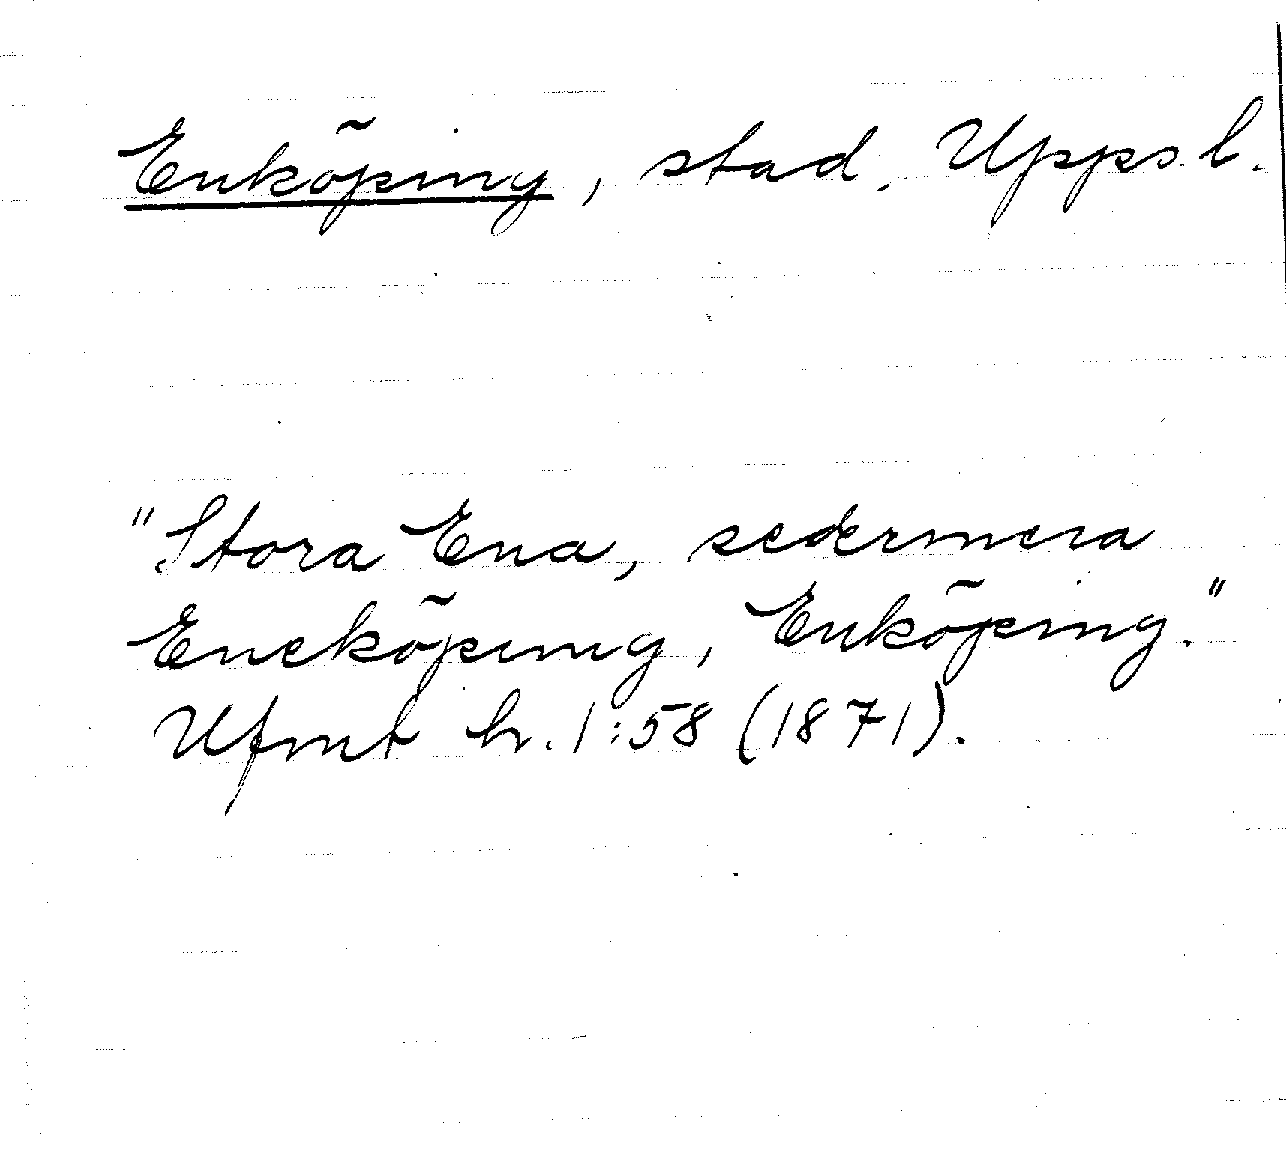 Enköping, stad, Upps l.
"Stora Ena, sedermera
Eneköping, Enköping."
Ufmt h. 1:58 (1871).